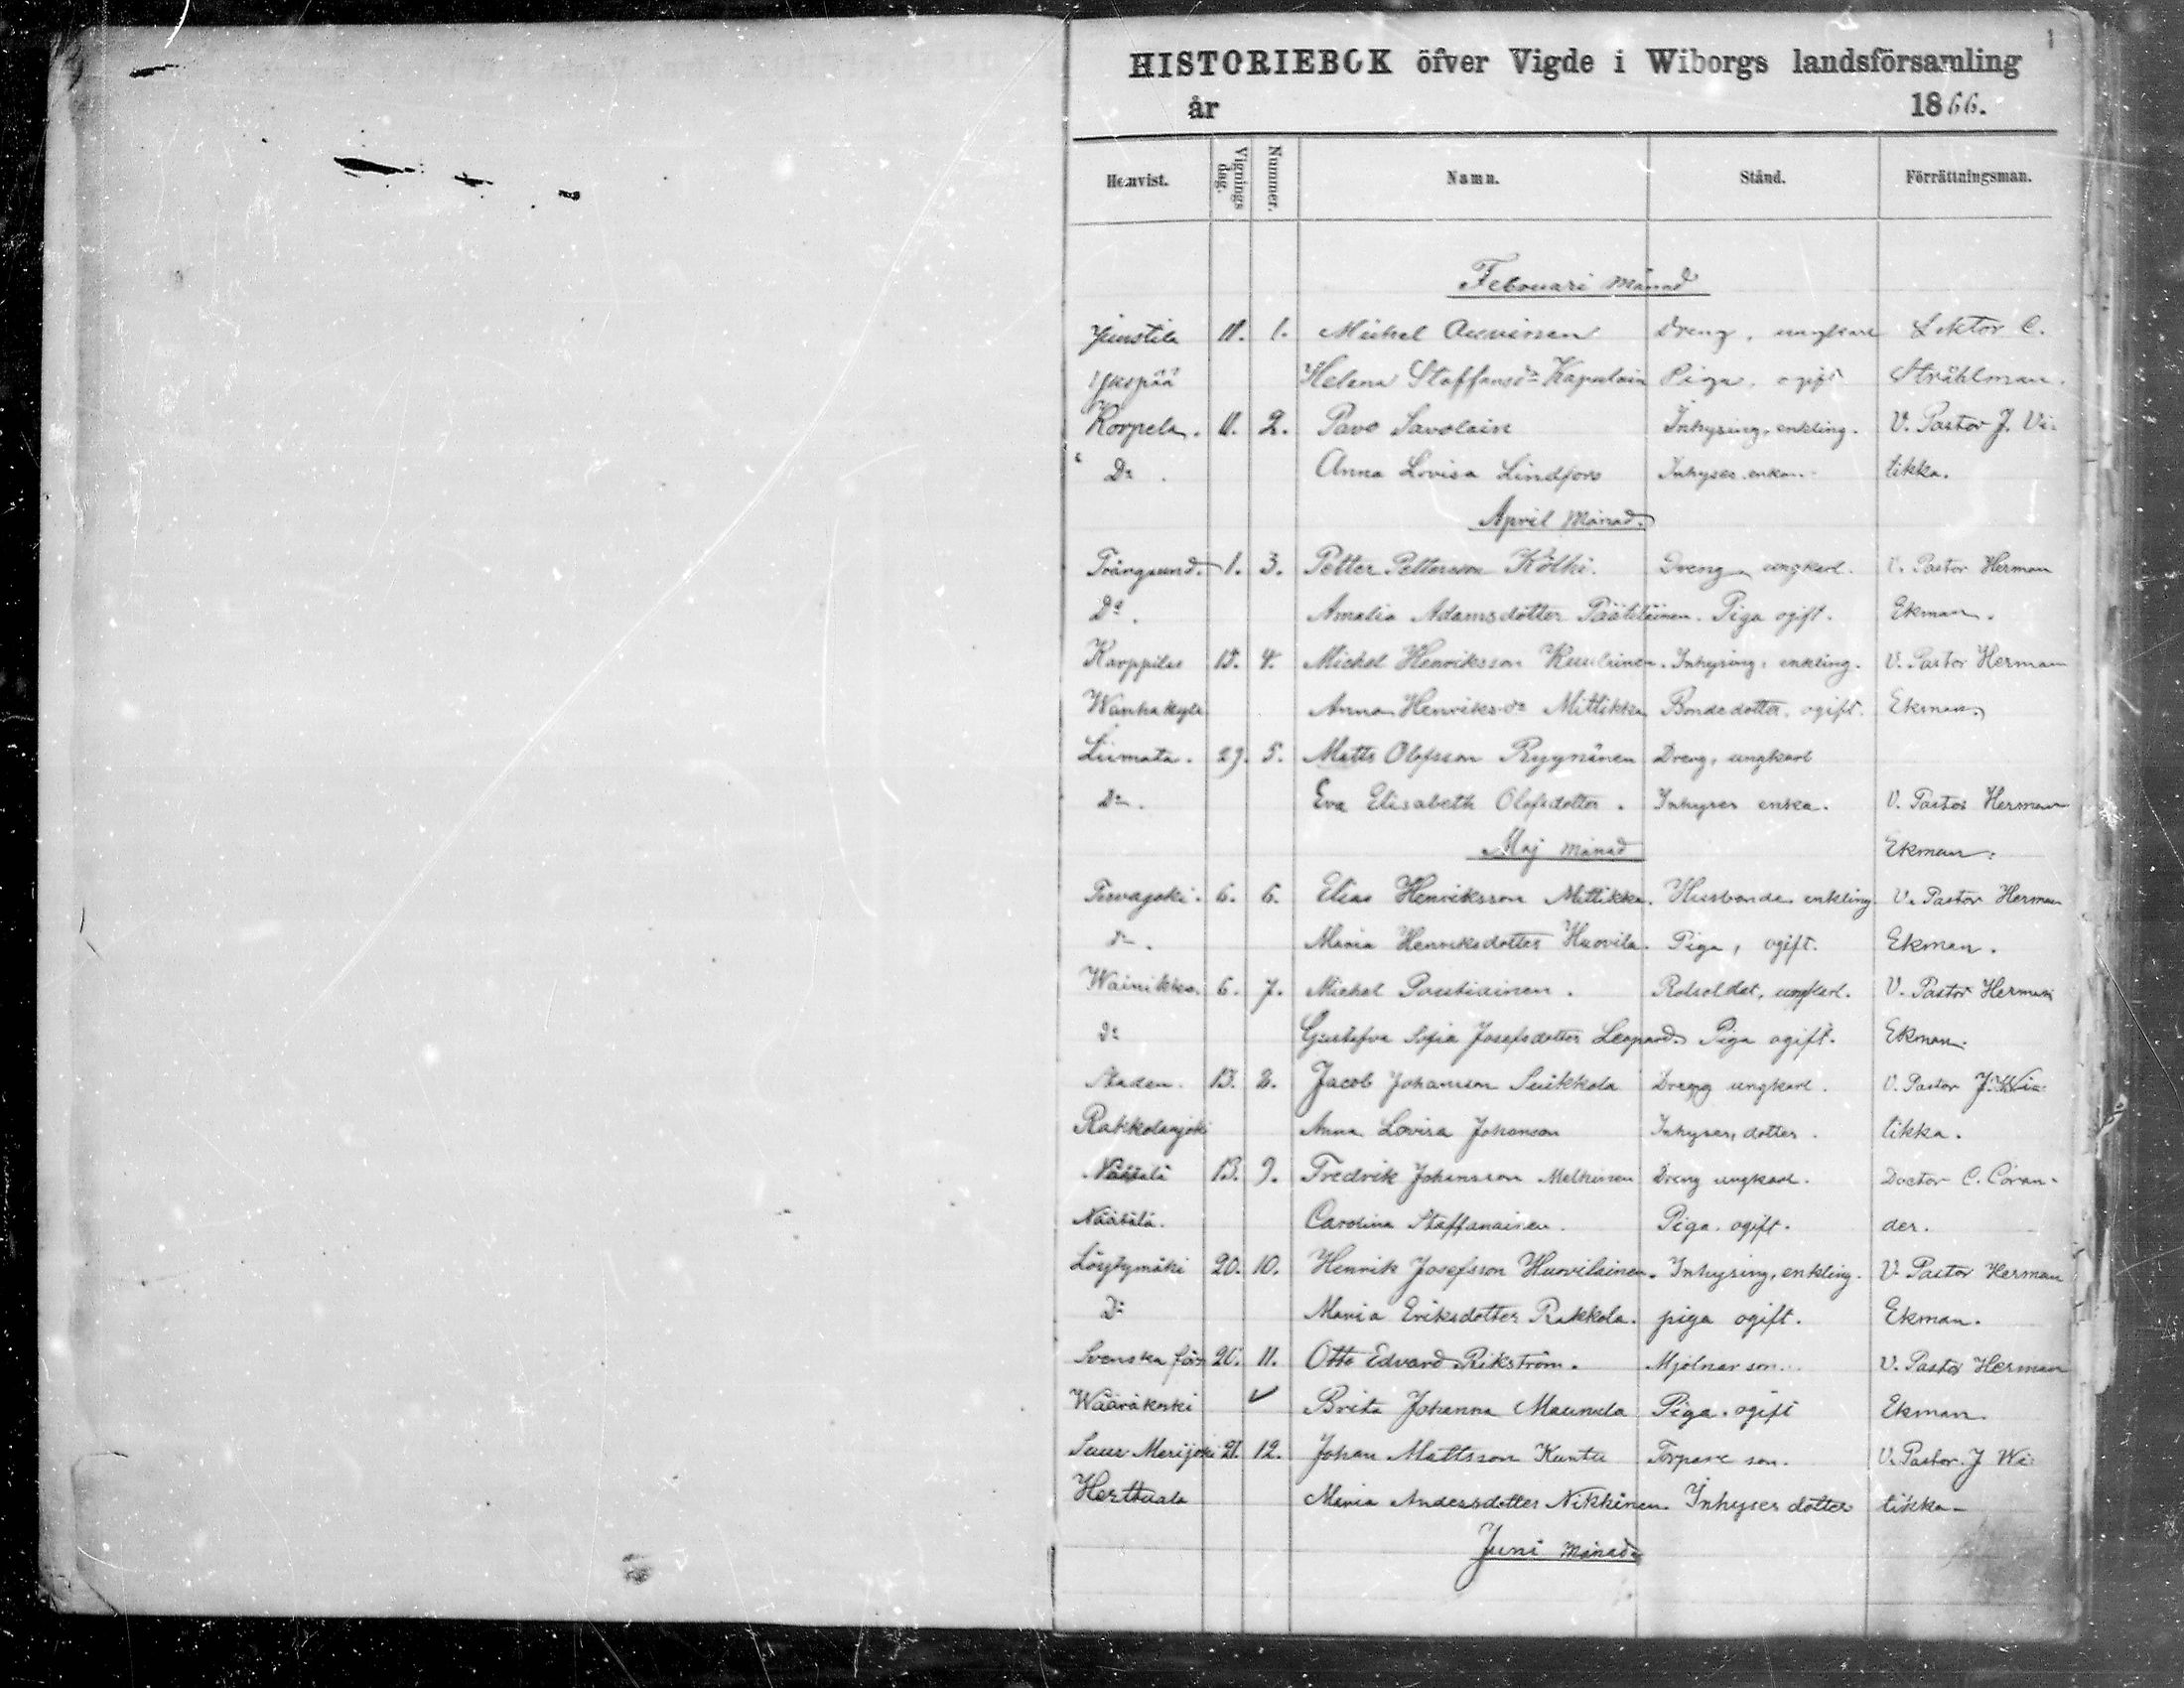 1
HISTORIEBOK öfver Vigde i Wiborgs landsförsamling
år 1866.
Hemvist. Vignings dag. Nummer. Namn. Stånd. Förrättningsman.
Februari månad
Juustila 11. 1. Michel Auvinen Dreng, ungkarl Lektor C.
Ykspää Helena Staffansdr Kapulain Piga, ogift Stråhlman.
Korpela. 11. 2. Pavo Savolain Inhysing, enkling. V. Pastor J. Vi-
Do. Anna Lovisa Lindfors Inhyses enka. tikka.
April månad.
Trångsund. 1. 3. Petter Pettersson Kölhi. Dreng, ungkarl. V. Pastor Herman
Do. Amalia Adamsdotter Päätiläinen. Piga ogift. Ekman.
Karppila 15. 4. Michel Henriksson Kuulainen. Inhysing, enkling. V. Pastor Herman
Wanhakylä Anna Henriksdr Mittikka Bondedotter, ogift. Ekman.
Liimata. 29. 5. Matts Olofsson Ryynänen Dreng, ungkarl
Do. Eva Elisabeth Olofsdotter. Inhyses enka. V. Pastor Herman
Maj månad Ekman.
Tervajoki. 6. 6. Elias Henriksson Mittikka. Husbonde enkling V. Pastor Herman
do. Maria Henriksdotter Huovila. Piga, ogift. Ekman.
Wainikka. 6. 7. Michel Pautiainen. Rotsoldat, ungkarl. V. Pastor Herman
do Gustafva Sofia Josefsdotter Leopard. Piga ogift. Ekman.
Staden. 13. 8. Jacob Johansson Suikkola Dreng ungkarl. V. Pastor J. Wi-
Rakkolanjoki Anna Lovisa Johanson Inhyses, dotter. tikka.
Näätälä 13. 9. Fredrik Johansson Melkinen Dreng ungkarl. Doctor C. Coran-
Näätälä. Carolina Staffanainen. Piga. ogift. der.
Löytymäki 20. 10. Henrik Josefsson Huovilainen. Inhysing, enkling. V. Pastor Herman
Do Maria Eriksdotter Rakkola. piga ogift. Ekman.
Svenska förs 21. 11. Otto Edvard Rikström. Mjölnar son. V. Pastor Herman
Wääräkoski ✓ Brita Johanna Maunula Piga. ogift Ekman.
Suur Merijoki 21. 12. Johan Mattsson Kuntu Torpare son. V. Pastor. J Wi-
Herttuala Maria Andersdotter Nikkinen. Inhyses dotter tikka-
Juni månad